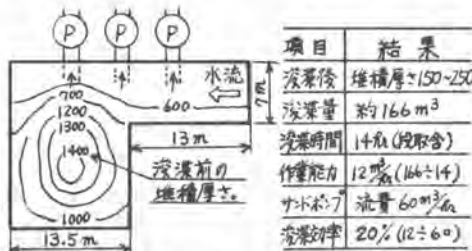 P P P
水流
700
600
1200
1300
1400
1000
7m
13m
13.5m
浚渫前の
堆積厚さ。
項目 結果
浚渫後 堆積厚さ150~250
浚渫量 約166m³
浚渫時間 14hr(段取含)
作業能力 12m³/hr(166÷14)
サンドポンプ 流量60m³/hr
浚渫効率 20%(12÷60)